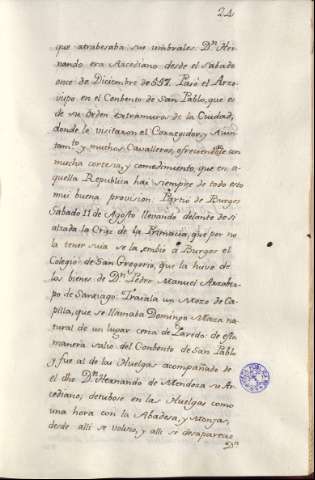 24
que atrabesaba sus umbrales. Dⁿ Her-
nando era Arcediano desde el Sabado
once de Diciembre de 557. Paró el Arzo-
vispo en el Conbento de San Pablo, que es
de su orden extramuros de la Ciudad,
donde le visitaron el Corregidor, y Ayun-
tamᵗᵒ y muchos Cavalleros, ofreciendosele con
mucha cortesia, y comedimiento, que en a-
quella Republica hai siempre de todo esto
mui buena provision. Partió de Burgos
Sabado 11 de Agosto llevando delante de si
alzada la Cruz de la Primacia, que por no
la tener suia se la embió a Burgos el
Colegio de San Gregorio, que la huvo de
los bienes de Dⁿ Pedro Manuel Arzobis-
po de Santiago. Traiala un Mozo de Ca-
pilla, que se llamaba Domingo Maza na-
tural de un lugar cerca de Laredo: de esta
manera salio del Conbento de San Pablo
y fue al de las Huelgas acompañado de
el dho Dⁿ Hernando de Mendoza su Ar-
cediano; detubose en las Huelgas como
una hora con la Abadesa, y Monjas,
desde alli se volvio, y alli se desaparecio
Dⁿ